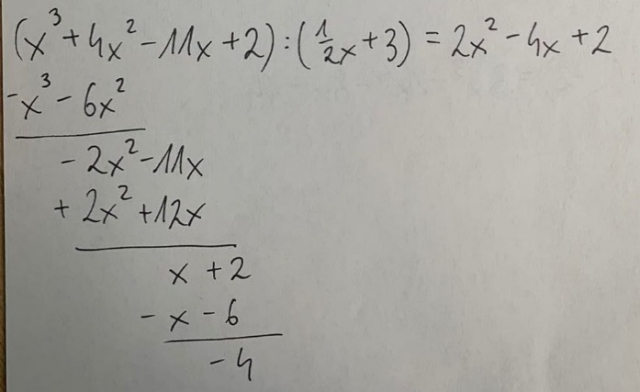 (x³ + 4x² - 11x + 2) : (½x + 3) = 2x² - 4x + 2
-x³ - 6x²
- 2x² - 11x
+ 2x² + 12x
x + 2
- x - 6
- 4